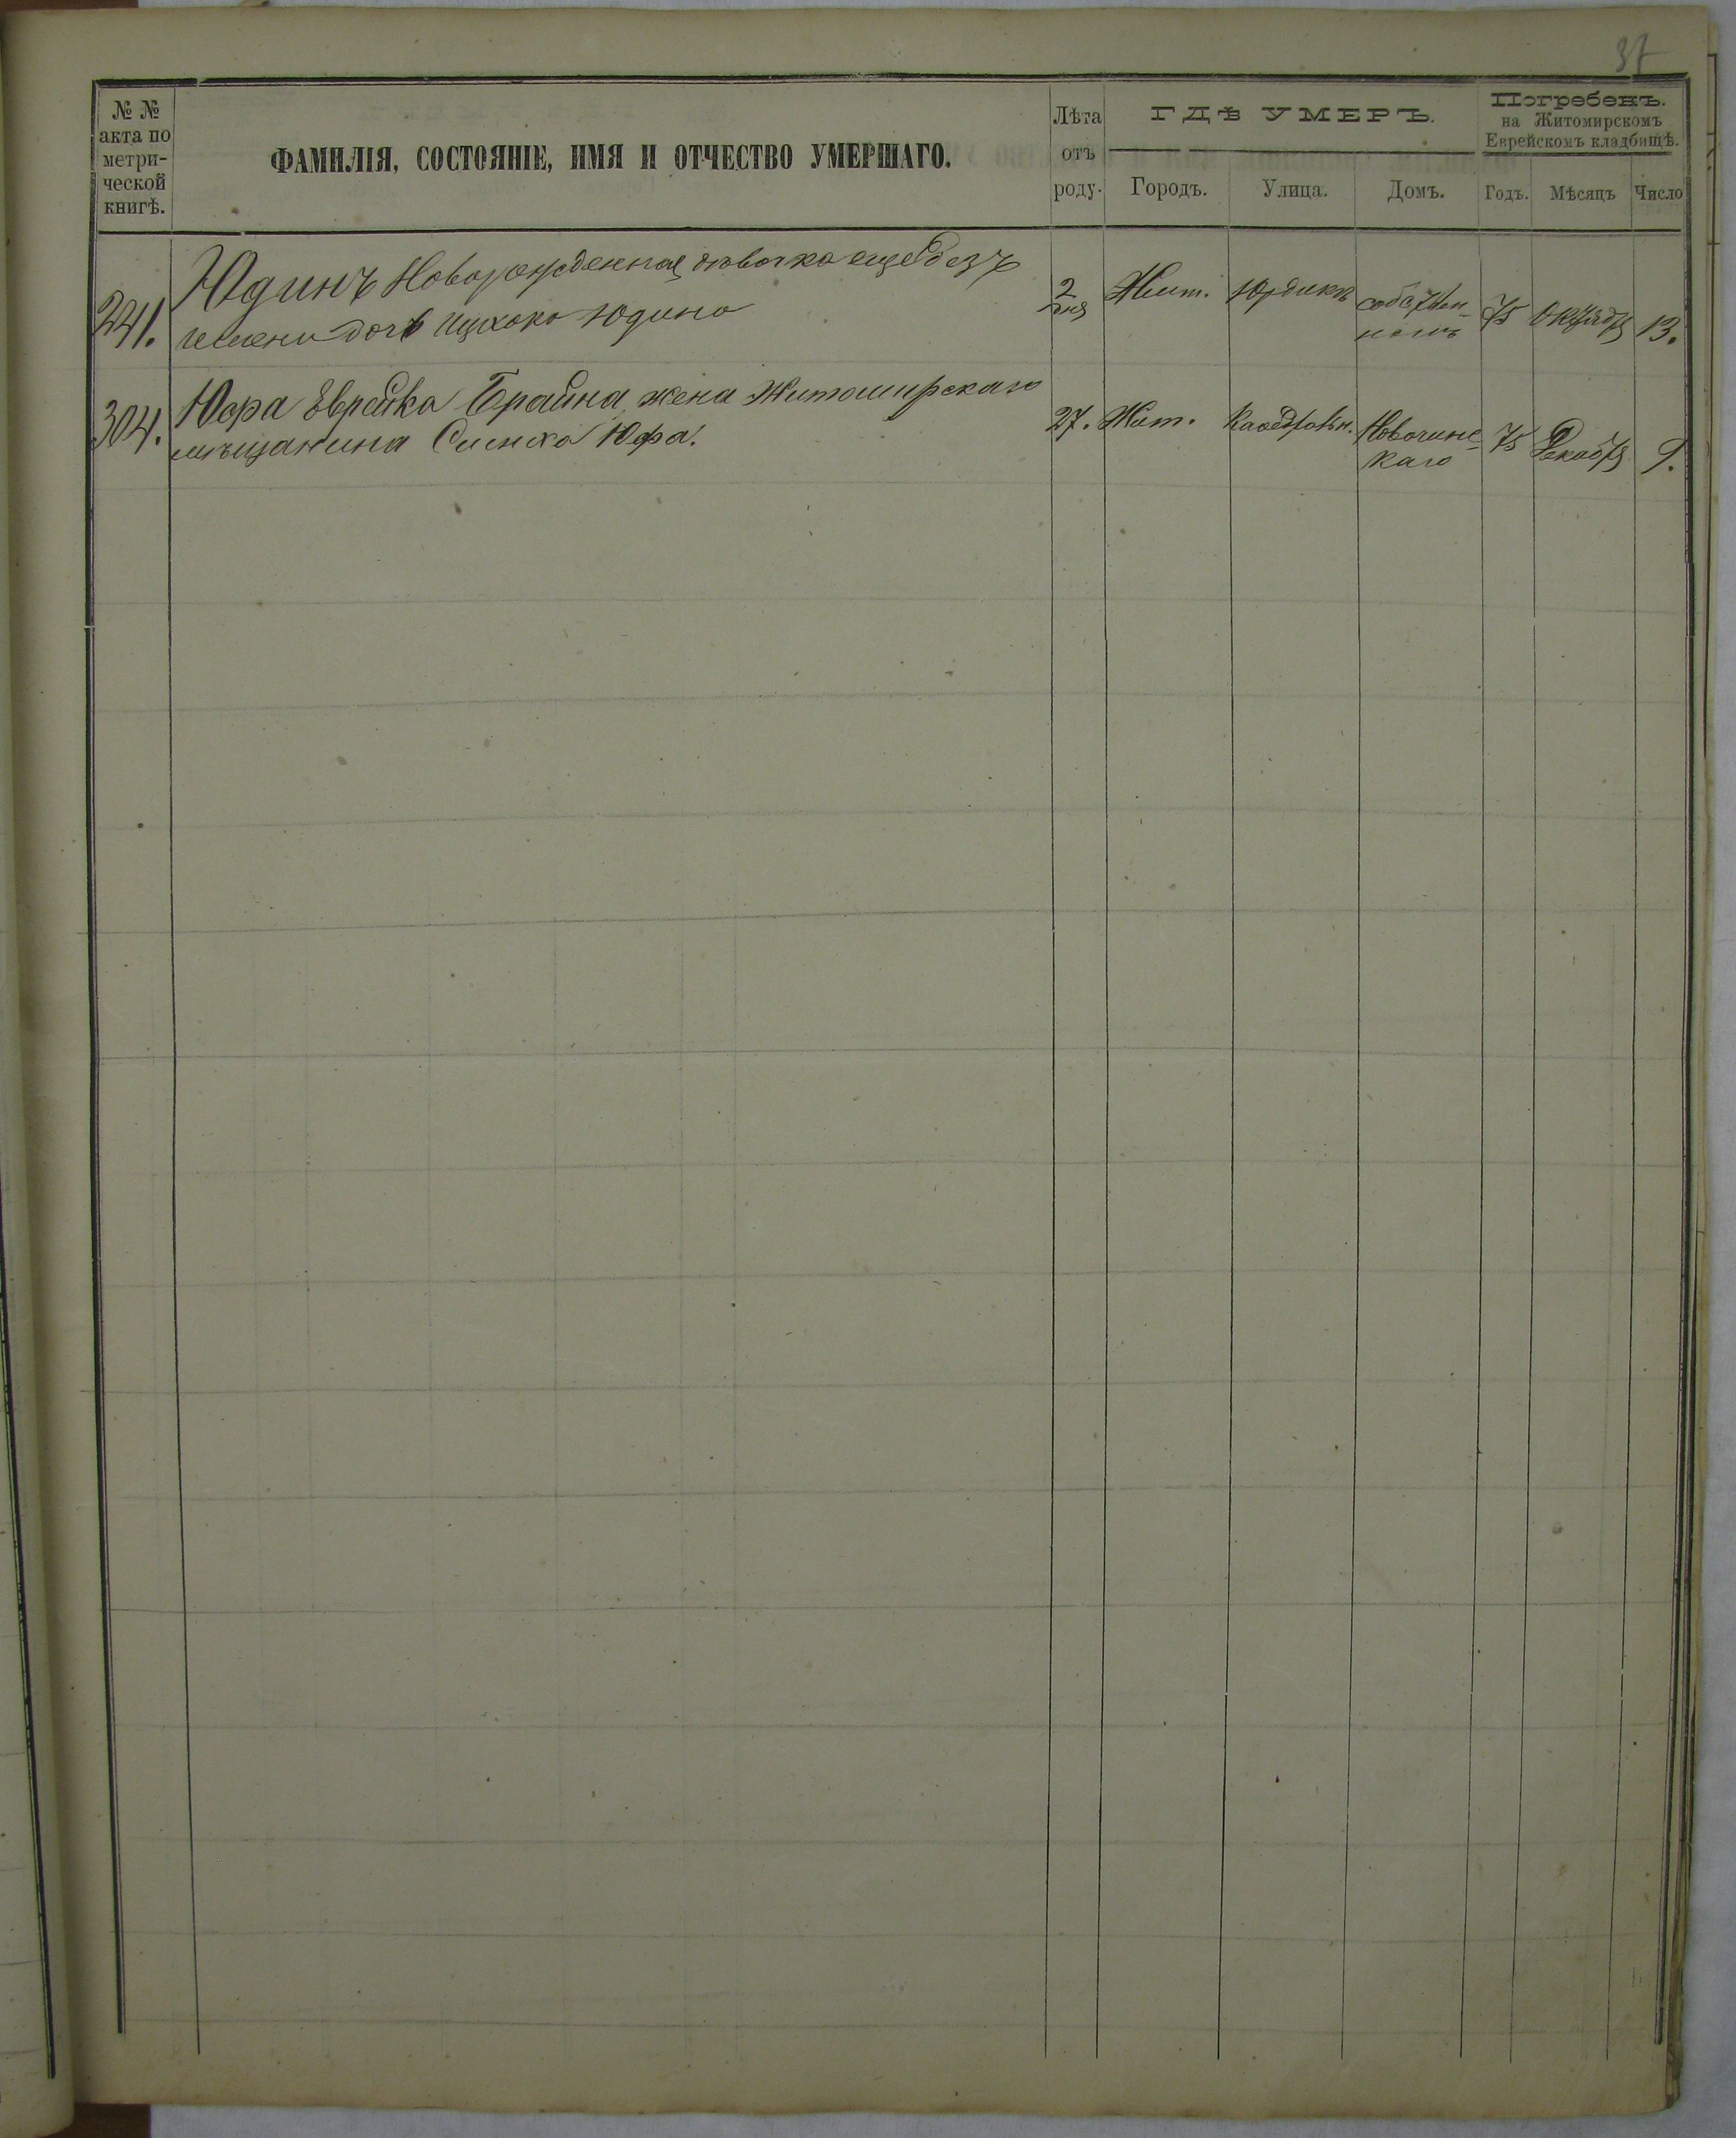 37
№ №
акта по
метри-
ческой
книгѣ.
ФАМИЛІЯ, СОСТОЯНІЕ, ИМЯ И ОТЧЕСТВО УМЕРШАГО.
Лѣта
отъ
роду.
ГДѢ УМЕРЪ.
Городъ.
Улица.
Домъ.
Погребенъ.
на Житомирскомъ
Еврейскомъ кладбищѣ.
Годъ.
Мѣсяцъ
Число
241.
Юдинъ Новорожденная дѣвочка еще безъ
имени дочь Ицхока Юдина
2
дня
Жит.
Юрдика
собствен-
номъ
75
Октября
13.
304.
Юфа Еврейка Брайна жена Житомирскаго
мѣщанина Симха Юфа.
27.
Жит.
Кафедральн.
75
Декабря
9.